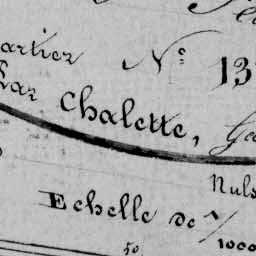 artier N° 13
Par Chalette, Geo
Nuls
Echelle de 1/1000
50